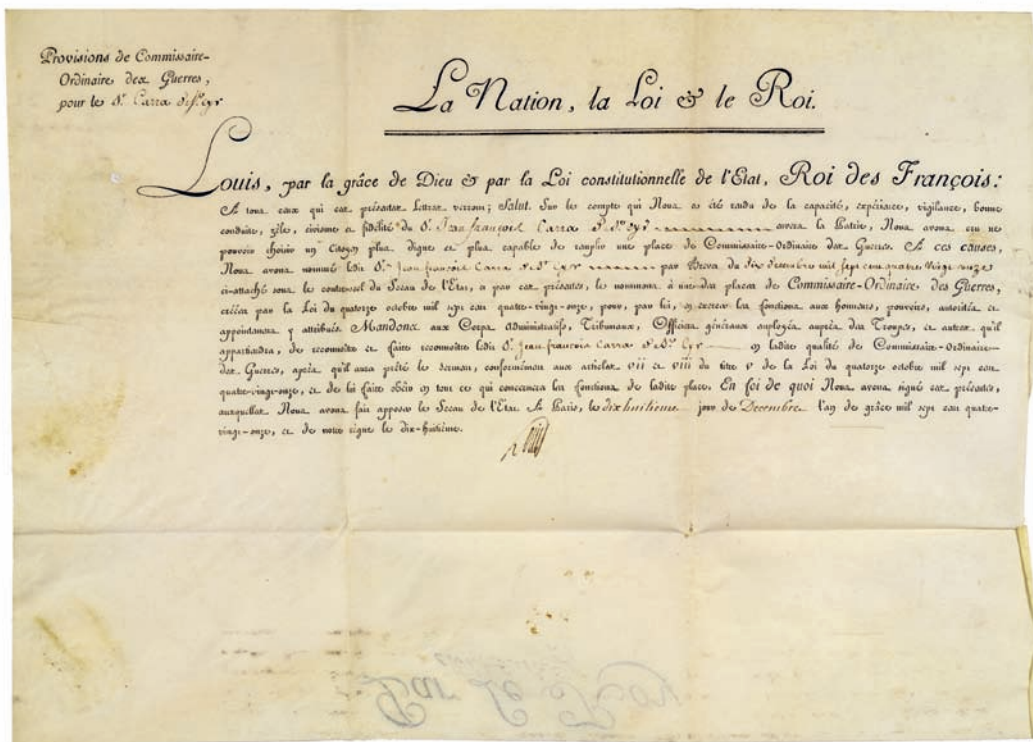 Provisions de Commissaire-
Ordinaire des Guerres,
pour le Sr. Carra de St. Cyr
La Nation, la Loi & le Roi.
Louis, par la grâce de Dieu & par la Loi constitutionnelle de l'Etat, Roi des François:
A tous ceux qui ces présentes Lettres verront; Salut. Sur le compte qui Nous a été rendu de la capacité, expérience, vigilance, bonne
conduite, zèle, civisme et fidélité du Sr. Jean françois Carra De St. Cyr envers la Patrie, Nous avons cru ne
pouvoir choisir un Citoyen plus digne et plus capable de remplir une place de Commissaire-Ordinaire des Guerres. A ces causes,
Nous avons nommé ledit Sr. Jean françois Carra de St. Cyr par Brevet du dix decembre mil sept cent quatre vingt onze
ci-attaché sous le contre-scel du Sceau de l'Etat, et par ces présentes, le nommons à une des places de Commissaire-Ordinaire des Guerres,
créées par la Loi du quatorze octobre mil sept cent quatre-vingt-onze, pour, par lui, en exercer les fonctions aux honneurs, pouvoirs, autorités et
appointemens y attribués. Mandons aux Corps administratifs, Tribunaux, Officiers généraux employés auprès des Troupes, et autres qu'il
appartiendra, de reconnoître et faire reconnoître ledit Sr. Jean françois Carra de St. Cyr en ladite qualité de Commissaire-Ordinaire
des Guerres, après qu'il aura prêté le serment, conformément aux articles VII et VIII du titre V de la Loi du quatorze octobre mil sept cent
quatre-vingt-onze, et de lui faire obéir en tout ce qui concernera les fonctions de ladite place. En foi de quoi Nous avons signé ces présentes,
auxquelles Nous avons fait apposer le Sceau de l'Etat. A Paris, le dix huitième jour de Decembre l'an de grâce mil sept cent quatre-
vingt-onze, et de notre règne le dix-huitième.
Louis
Par le Roy